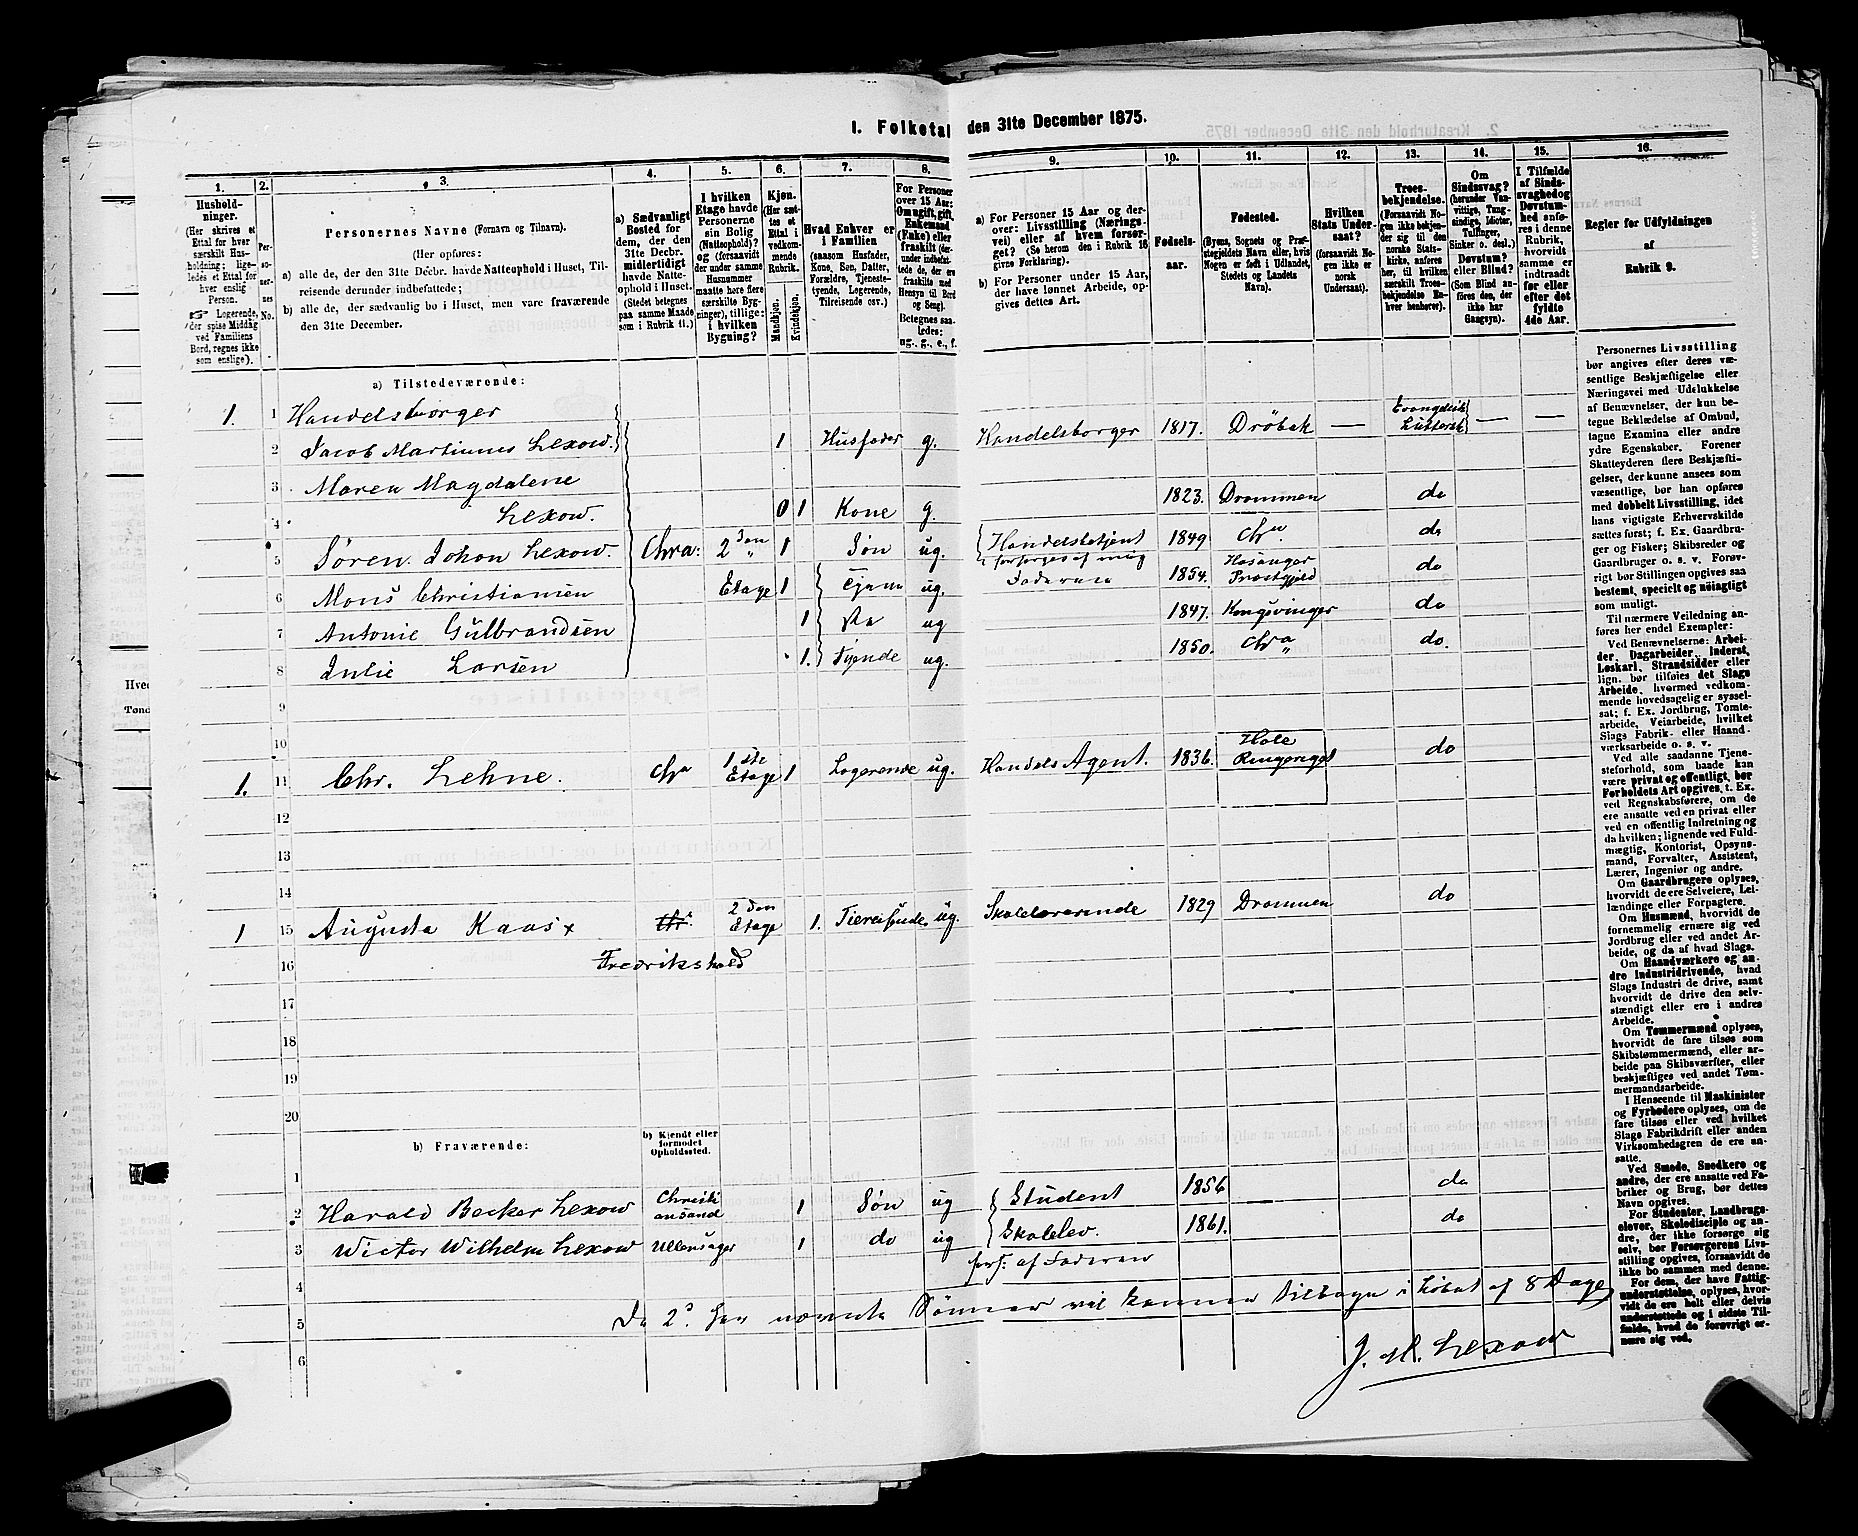 1. Folketal den 31te December 1875.
1. 2. 3. 4. 5. 6. 7. 8. 9. 10. 11. 12. 13. 14. 15. 16.
Hushold-
ninger.
(Her skrives et
Ettal for hver
særskilt Hus-
holdning; lige-
ledes et Ettal for
hver enslig
Person.
☞ Logerende,
der spise Middag
ved Familiens
Bord, regnes ikke
som enslige).
Per-
so-
ner-
nes
No.
Personernes Navne (Fornavn og Tilnavn).
(Her opføres:
a) alle de, der den 31te Decbr. havde Natteophold i Huset, Til-
reisende derunder indbefattede;
b) alle de, der sædvanlig bo i Huset, men vare fraværende
den 31te December.
a) Sædvanligt
Bosted for
dem, der den
31te Decbr.
midlertidigt
havde Natte-
ophold i Huset.
(Stedet betegnes
paa samme Maade
som i Rubrik 11.)
I hvilken
Etage havde
Personerne
sin Bolig
(Natteophold)?
og (forsaavidt
der under samme
Husnummer
maatte høre flere
særskilte Byg-
ninger), tillige:
i hvilken
Bygning?
Kjøn.
(Her sæt-
tes et
Ettal i
vedkom-
mende
Rubrik.)
Mandkjøn.
Kvindekjøn.
Hvad Enhver er
i Familien
(saasom Husfader,
Kone, Søn, Datter,
Forældre, Tjeneste-
tyende, Logerende,
Tilreisende osv.)
For Personer
over 15 Aar:
Om ugift, gift,
Enkemand
(Enke) eller
fraskilt (der-
under indbefat-
tede de, der ere
fraskilte med
Hensyn til Bord
og Seng).
Betegnes saa-
ledes:
ug., g., e., f.
a) For Personer 15 Aar og der-
over: Livsstilling (Nærings-
vei) eller af hvem forsør-
get? (Se herom den i Rubrik 16
givne Forklaring).
b) For Personer under 15 Aar,
der have lønnet Arbeide, op-
gives dettes Art.
Fødsels-
aar.
Fødested.
(Byens, Sognets og Præ-
stegjeldets Navn eller, hvis
Nogen er født i Udlandet,
Stedets og Landets
Navn).
Hvilken
Stats Under-
saat?
(forsaavidt No-
gen ikke er
norsk
Undersaat).
Troes-
bekjendelse.
(Forsaavidt No-
gen ikke bekjen-
der sig til den
norske Stats-
kirke, anføres
her, til hvilken
særskilt Troes-
bekjendelse En-
hver henhører).
Om
Sindssvag?
(herunder Van-
vittige, Tung-
sindige, Idioter,
Tullinger,
Sinker o. desl.)
Døvstum?
eller Blind?
(Som Blind an-
føres den, der
ikke har
Gangsyn).
I Tilfælde
af Sinds-
svaghed og
Døvstum-
hed anfø-
res i denne
Rubrik,
hvorvidt
samme er
indtraadt
før eller
efter det
fyldte
4de Aar.
Regler for Udfyldningen
af
Rubrik 9.
a) Tilstedeværende:
1. 1 Handelsborger
2 Jacob Martinus Lexow. 1 Husfader g. Handelsborger 1817. Dröbak — Evangelisk Luthersk — —
3 Maren Magdalene
4 Lexow. 0 1 Kone g. 1823. Drammen do
5 Søren Johan Lexow. Chra: 2den 1 Søn ug. Handelsbetjent 1849 Chra. do
forsørges af mig
Faderen
6 Mons Christiansen Etage 1 Tjener ug. 1854. Præstgjeld do
7 Antonie Gulbrandsen 1 Do ug 1847. Kongsvinger do
8 Julie Larsen 1. Tyende ug. 1850. Chra do.
9
10
1. 11 Chr. Lehne. Chra 1ste Etage 1 Logerende ug. Handels Agent. 1836. Hole Ringeriget do
12
13
14
1 15 Augusta Kaas x Chr. 2den Etage 1. Tilreisende ug. Skolelærerinde 1829 Drammen do
16 Fredrikshald
17
18
19
20
b) Fraværende:
b) Kjendt eller
formodet
Opholdssted.
1
2 Harald Becker Lexow Christiansand 1 Søn ug Student 1856 do
3 Wictor Wilhelm Lexow Ullensager 1 do ug Skolelev. 1861. do
fors: af Faderen
4
5 De 2de her nævnte Sönner vil komme tilbage i Löbet af 8 Dage
6 J. M. Lexow
Personernes Livsstilling
bør angives efter deres væ-
sentlige Beskjæftigelse eller
Næringsvei med Udelukkelse
af Benævnelser, der kun be-
tegne Beklædelse af Ombud,
tagne Examina eller andre
ydre Egenskaber. Forener
Skatteyderen flere Beskjæfti-
gelser, der kunne ansees som
væsentlige, bør han opføres
med dobbelt Livsstilling, idet
hans vigtigste Erhvervskilde
sættes først; f. Ex. Gaardbru-
ger og Fisker; Skibsreder og
Gaardbruger o. s. v. Forøv-
rigt bør Stillingen opgives saa
bestemt, specielt og nøiagtigt
som muligt.
Til nærmere Veiledning an-
føres her endel Exempler:
Ved Benævnelserne: Arbei-
der, Dagarbeider, Inderst,
Løskarl, Strandsidder eller
lign. bør tilføies det Slags
Arbeide, hvormed vedkom-
mende hovedsagelig er syssel-
sat; f. Ex. Jordbrug, Tomte-
arbeide, Veiarbeide, hvilket
Slags Fabrik- eller Haand-
værksarbeide o. s. v.
Ved alle saadanne Tjene-
steforhold, som baade kan
være privat og offentligt, bør
Forholdets Art opgives, t. Ex.
ved Regnskabsførere, om de
ere ansatte ved en privat eller
ved en offentlig Indretning og
da hvilken; lignende ved Fuld-
mægtig, Kontorist, Opsyns-
mand, Forvalter, Assistent,
Lærer, Ingeniør og andre.
Om Gaardbrugere oplyses,
hvorvidt de ere Selveiere, Lei-
lændinge eller Forpagtere.
Om Husmænd, hvorvidt de
fornemmelig ernære sig ved
Jordbrug eller ved andet Ar-
beide, og da af hvad Slags.
Om Haandværkere og an-
dre Industridrivende, hvad
Slags Industri de drive, samt
hvorvidt de drive den selv-
stændigt eller ere i andres
Arbeide.
Om Tømmermænd oplyses,
hvorvidt de fare tilsøs som
Skibstømmermænd, eller ar-
beide paa Skibsværfter, eller
beskjæftiges ved andet Tøm-
mermandsarbeide.
I Henseende til Maskinister
og Fyrbødere oplyses, om de
fare tilsøs eller ved hvilket
Slags Fabrikdrift eller anden
Virksomhedsgren de ere an-
satte.
Ved Smede, Snedkere og
andre, der ere ansatte ved Fa-
briker og Brug, bør dettes
Navn opgives.
For Studenter, Landbrugs-
elever, Skoledisciple og an-
dre, der ikke forsørge sig
selv, bør Forsørgerens Livs-
stilling opgives, forsaavidt de
ikke bo sammen med denne.
For dem, der have Fattig-
understøttelse, oplyses, hvor-
vidt de ere helt eller delvis
understøttede og i sidste Til-
fælde, hvad de forøvrigt er-
nære sig ved.